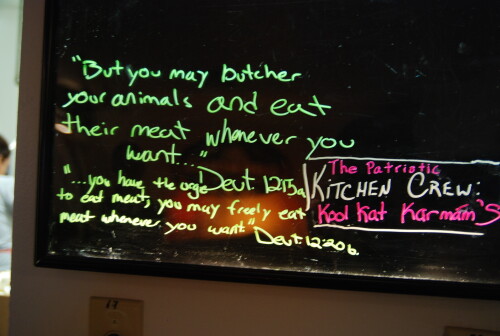 "But you may butcher
your animals and eat
their meat whenever you
want..."
Deut 12:15a
"...you have the urge
to eat meat, you may freely eat
meat whenever you want."
Deut 12:20b.
The Patriotic
KITCHEN CREW:
Kool Kat Karmam's